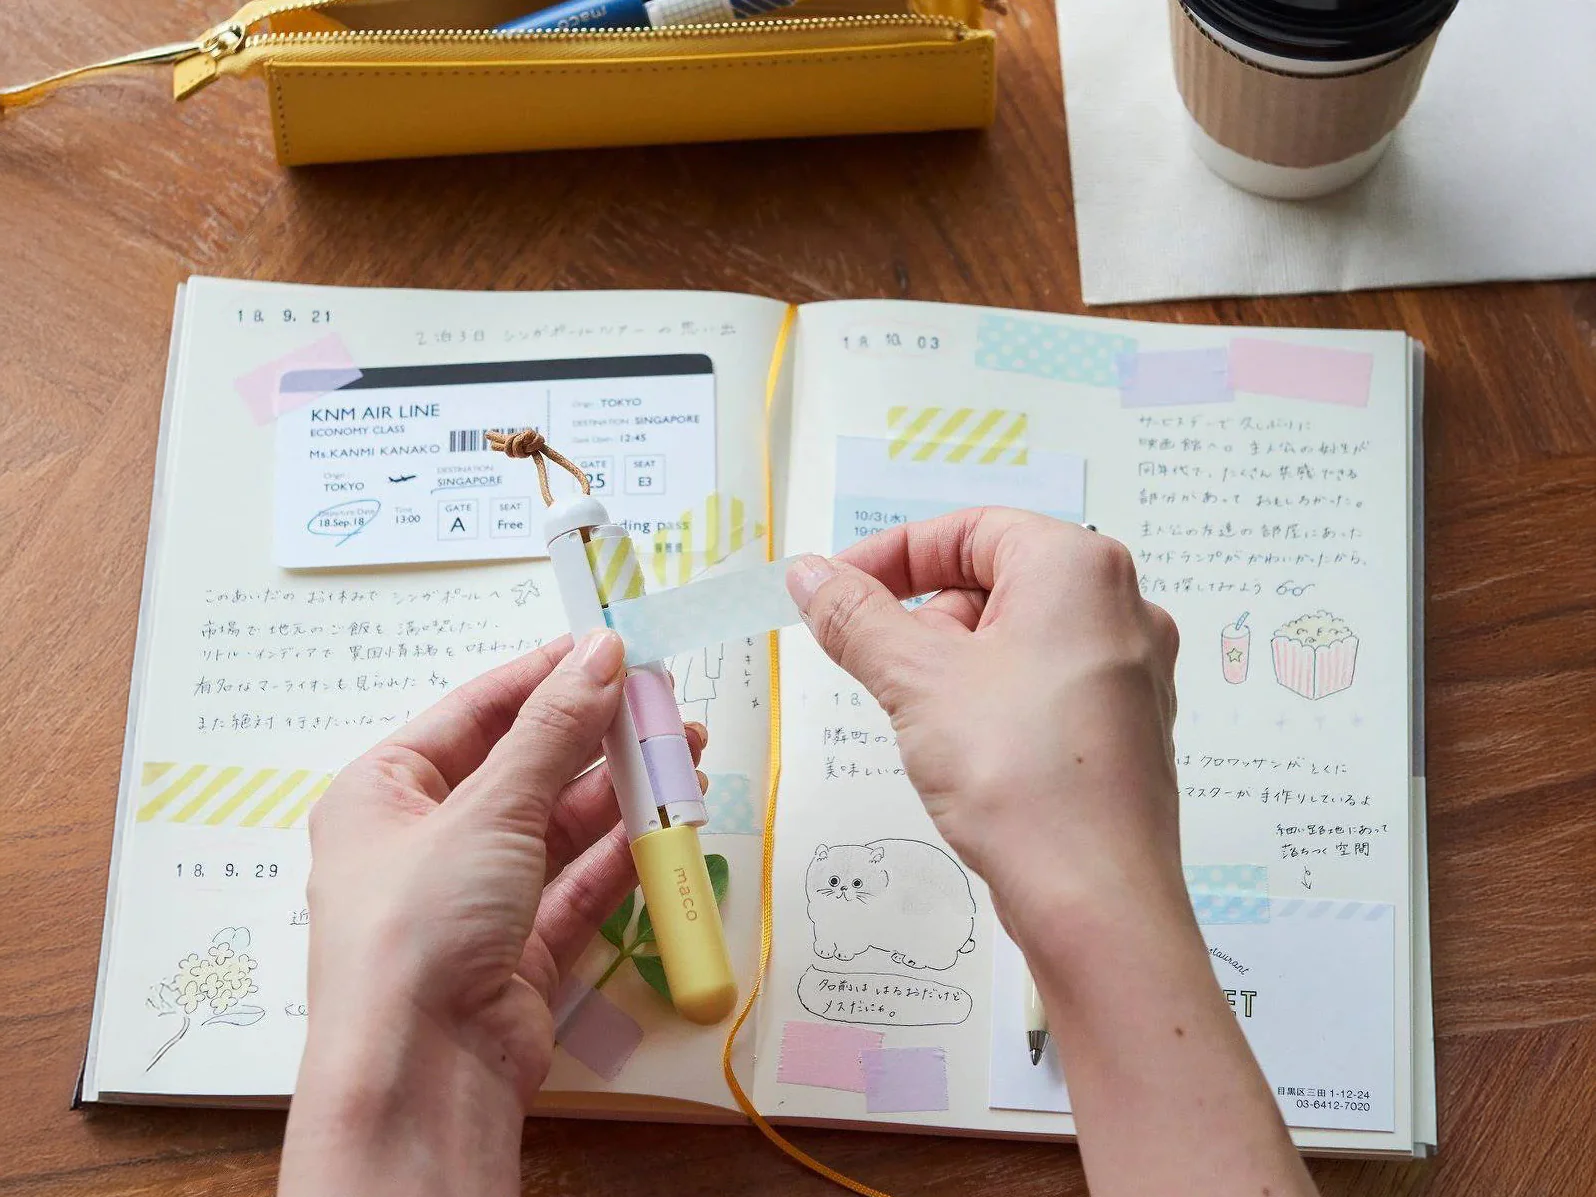 maco
18. 9. 21
2泊3日 シンガポールツアーの思い出
KNM AIR LINE
ECONOMY CLASS
Ms.KANMI KANAKO
Origin
TOKYO
DESTINATION
SINGAPORE
Departure Date
18.Sep.18
Time
13:00
GATE
A
SEAT
Free
Origin TOKYO
DESTINATION SINGAPORE
Gate Open 12:45
GATE
25
SEAT
E3
ding pass
搭乗券
このあいだの お休みで シンガポールへ
市場で地元のご飯を満喫したり、
リトル・インディアで 異国情緒を 味わったり
有名なマーライオンも見られた
また絶対行きたいな〜!
もキレイ
18. 9. 29
近
maco
18. 10. 03
サービスデーで久しぶりに
映画館へ。主人公の女性が
同年代で、たくさん共感できる
部分があって おもしろかった。
主人公の友達の部屋にあった
サイドランプがかわいかったから、
今度探してみよう
10/3(水)
19:00
18.
隣町の
美味しいの
はクロワッサンがとくに
マスターが手作りしているよ
細い路地にあって
落ちつく空間
名前ははるおだけど
メスだにゃ。
staurant
ET
目黒区三田 1-12-24
03-6412-7020